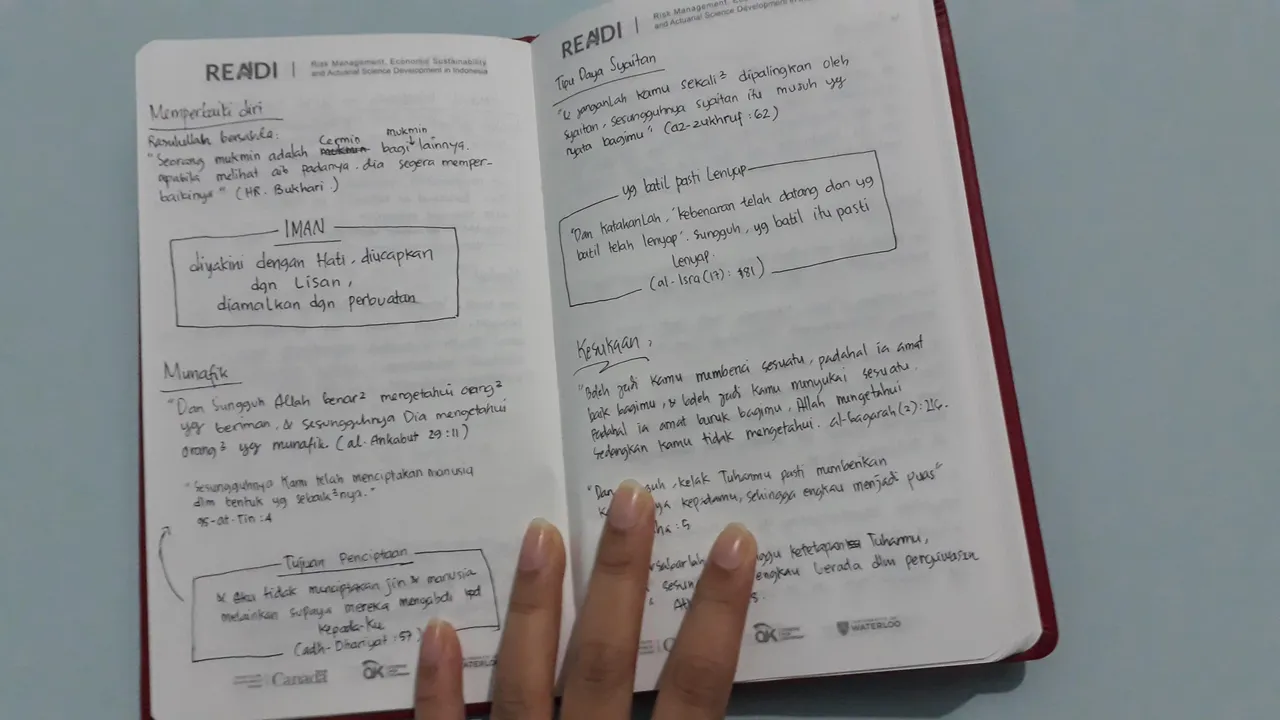 READI | Risk Management, Economic Sustainability
and Actuarial Science Development in Indonesia
Memperbaiki diri
Rasulullah bersabda:
"Seorang mukmin adalah cermin bagi mukmin lainnya.
apabila melihat aib padanya. dia segera memper-
baikinya" (HR. Bukhari)
IMAN
diyakini dengan Hati, diucapkan
dgn Lisan,
diamalkan dgn perbuatan
Munafik
"Dan Sungguh Allah benar² mengetahui orang²
yg beriman, & sesungguhnya Dia mengetahui
orang² yg munafik. (al-Ankabut 29:11)
"Sesungguhnya Kami telah menciptakan manusia
dlm bentuk yg sebaik²nya."
95-at-Tin:4
Tujuan Penciptaan
& Aku tidak menciptakan jin & manusia
melainkan supaya mereka mengabdi
kepada-Ku
(adh-Dhariyat:57)
Canada
WATERLOO
READI | Risk Management,
and Actuarial Science Development in
Tipu Daya Syaitan
"& janganlah kamu sekali² dipalingkan oleh
syaitan, sesungguhnya syaitan itu musuh yg
nyata bagimu" (az-zukhruf:62)
yg batil pasti Lenyap
"Dan katakanlah, 'kebenaran telah datang dan yg
batil telah lenyap'. sungguh, yg batil itu pasti
Lenyap.
(al-Isra(17): 81)
Kesukaan,
"Boleh jadi kamu membenci sesuatu, padahal ia amat
baik bagimu, & boleh jadi kamu menyukai sesuatu.
Padahal ia amat buruk bagimu, Allah mengetahui
sedangkan kamu tidak mengetahui. al-baqarah(2):216.
"Dan kelak Tuhanmu pasti memberikan
kepadamu, sehingga engkau menjadi puas"
:5
ketetapan Tuhanmu,
engkau berada dlm pengawasan
WATERLOO